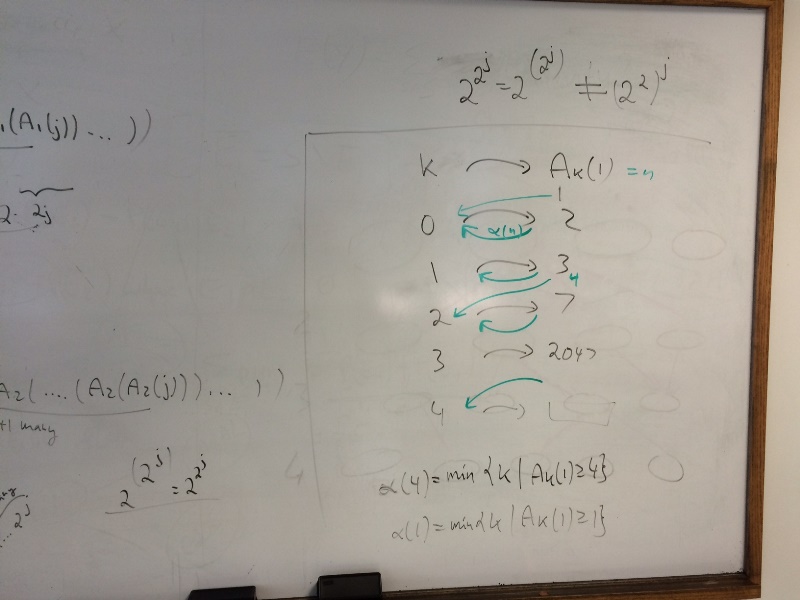 2^2^j = 2^(2^j) ≠ (2^2)^j
₁(A₁(j)) ... ))
2· 2j
k → Aₖ(1) = n
1
0 α(n) 2
1 → 3
4
2 → 7
3 → 2047
4 →
A₂(....(A₂(A₂(j))... ))
+1 many
2^(2^j) = 2^2^j
2^j
α(4) = min{k | Aₖ(1) ≥ 4}
α(1) = min{k | Aₖ(1) ≥ 1}